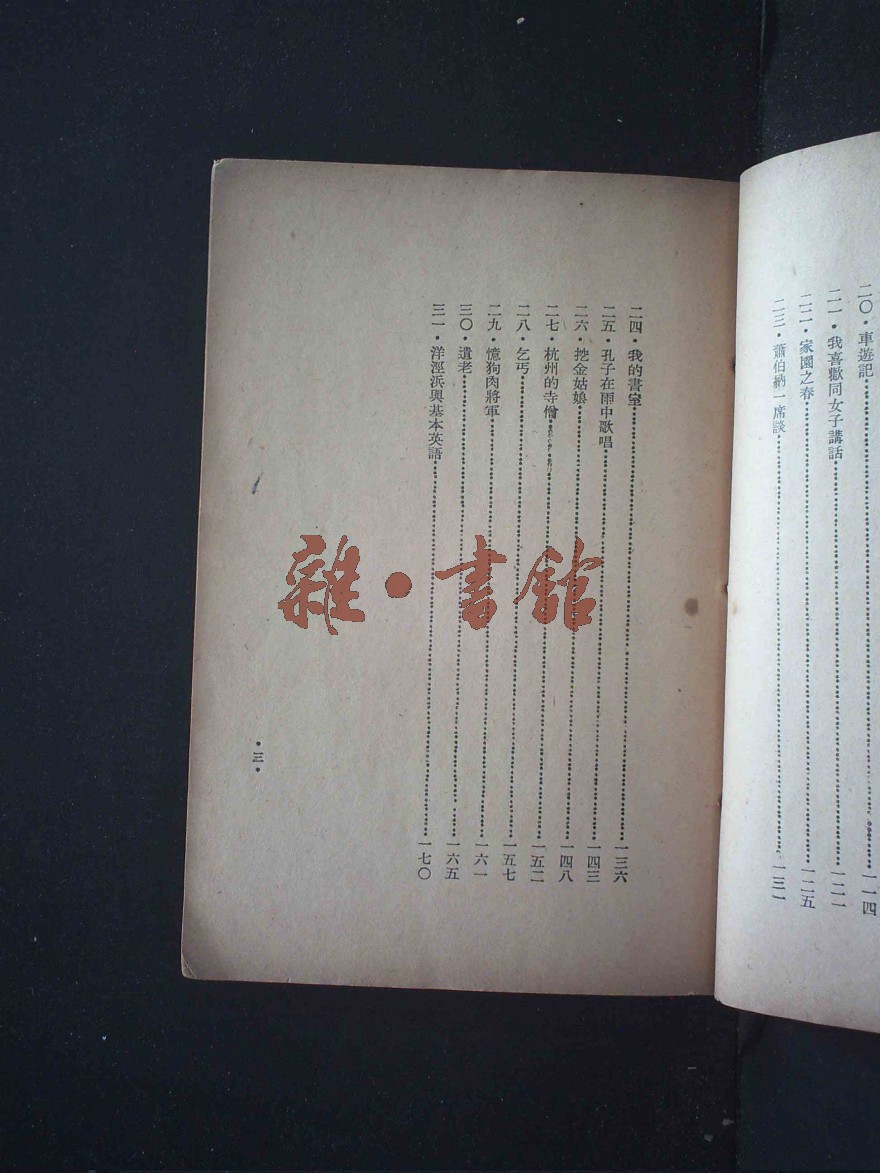 二〇・車遊記…………一一四
二一・我喜歡同女子講話…………一二一
二二・家園之春…………一二五
二三・蕭伯納一席談…………一三一
二四・我的書室…………一三六
二五・孔子在雨中歌唱…………一四三
二六・挖金姑娘…………一四八
二七・杭州的寺僧…………一五二
二八・乞丐…………一五七
二九・憶狗肉將軍…………一六一
三〇・遺老…………一六五
三一・洋涇浜與基本英語…………一七〇
・三・
雜・書館